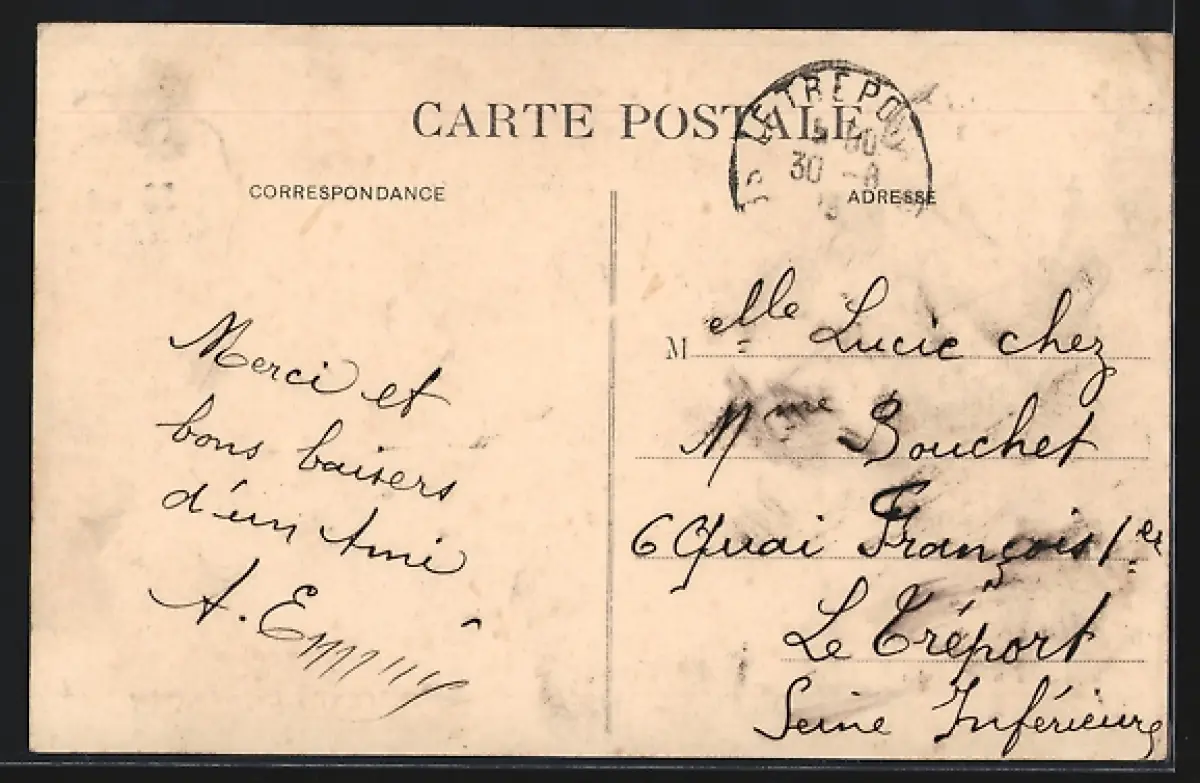 CARTE POSTALE
LE TREPORT
30 - 8
CORRESPONDANCE
ADRESSE
Merci et
bons baisers
d'un Ami
A.
M elle Lucie chez
Mme Bouchet
6 Quai François 1er
Le Tréport
Seine Inférieure